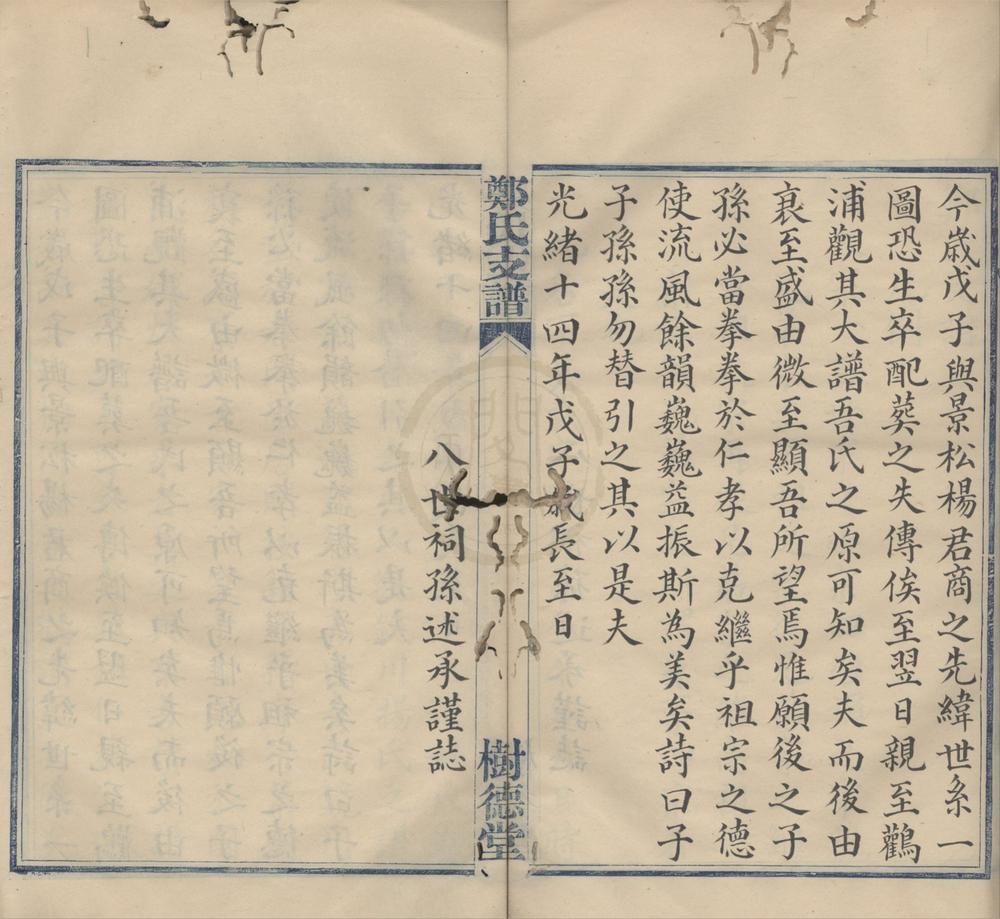 今歲戊子與景松楊君商之先緯世系一
圖恐生卒配葬之失傳俟至翌日親至鸛
浦觀其大譜吾氏之原可知矣夫而後由
衰至盛由微至顯吾所望焉惟願後之子
孫必當拳拳於仁孝以克繼乎祖宗之德
使流風餘韻巍巍益振斯為美矣詩曰子
子孫孫勿替引之其以是夫
光緒十四年戊子歲長至日
鄭氏支譜
樹德堂
八世祠孫述承謹誌